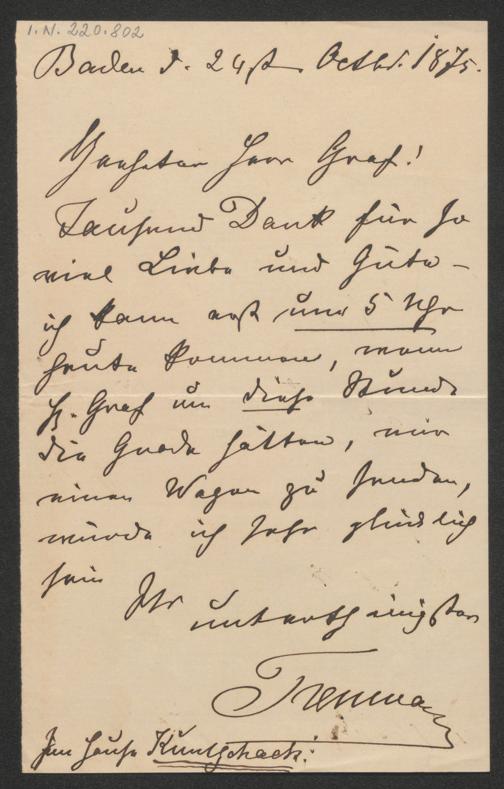 I.N. 220.802
Baden d. 24st Octbr. 1875.
Verehrter Herr Graf!
Tausend Dank für so
viel Liebe und Güte –
ich kann erst um 5 Uhr
heute kommen, wenn
H. Graf um diese Stunde
die Gnade hätten, mir
einen Wagen zu senden,
würde ich sehr glücklich
sein
Ihr
unterthänigster
Im Hause